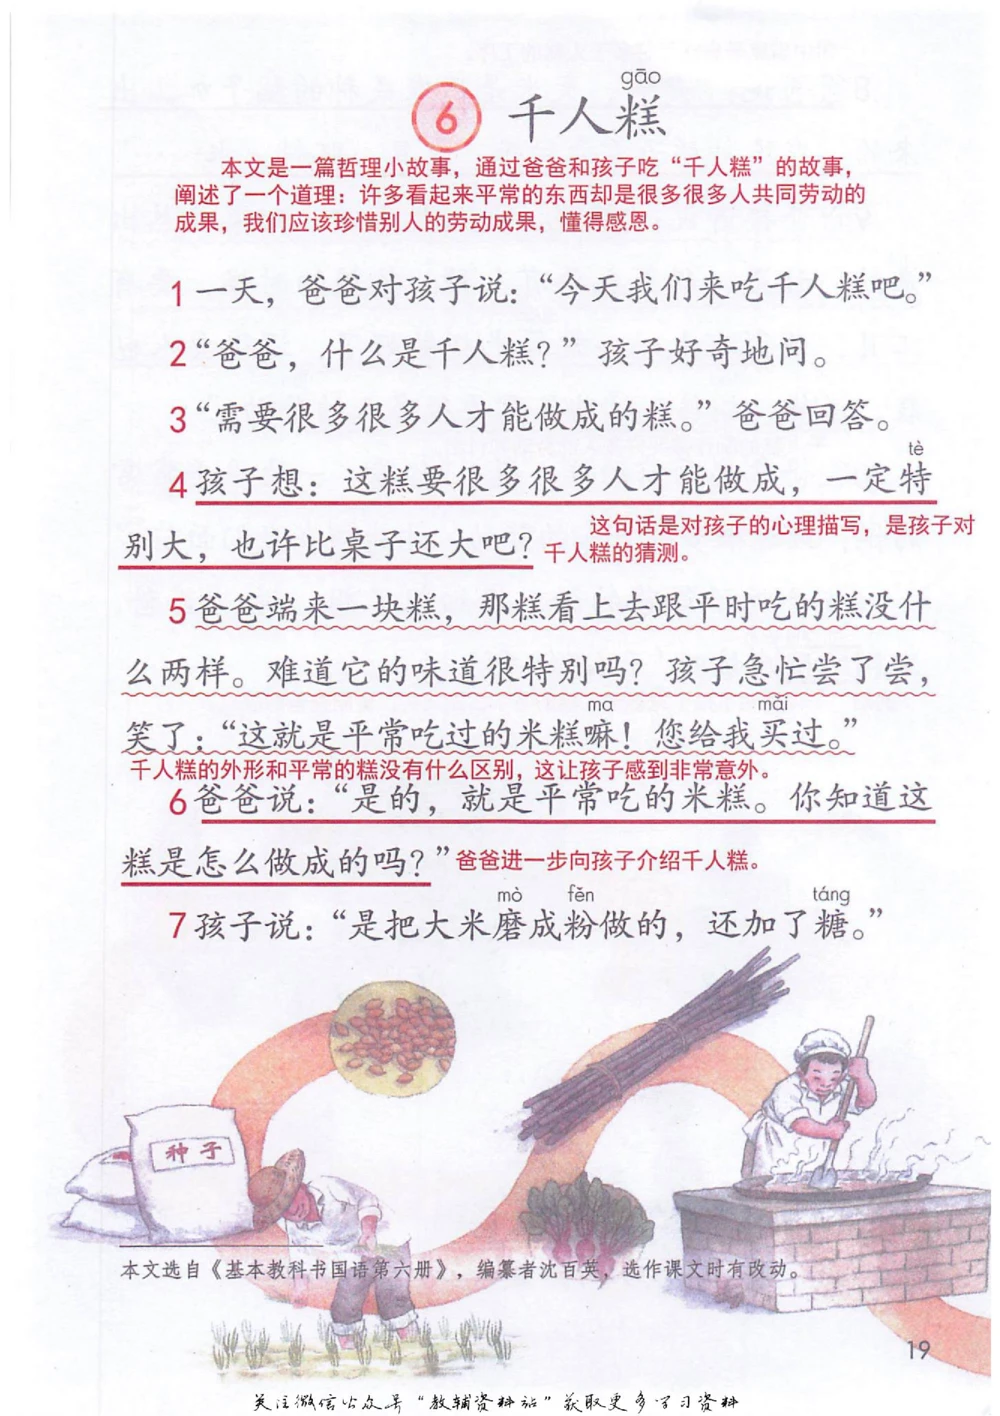 gāo
6 千人糕
本文是一篇哲理小故事，通过爸爸和孩子吃“千人糕”的故事，
阐述了一个道理：许多看起来平常的东西却是很多很多人共同劳动的
成果，我们应该珍惜别人的劳动成果，懂得感恩。
1 一天，爸爸对孩子说：“今天我们来吃千人糕吧。”
2 “爸爸，什么是千人糕？”孩子好奇地问。
3 “需要很多很多人才能做成的糕。”爸爸回答。
tè
4 孩子想：这糕要很多很多人才能做成，一定特
这句话是对孩子的心理描写，是孩子对
别大，也许比桌子还大吧？
千人糕的猜测。
5 爸爸端来一块糕，那糕看上去跟平时吃的糕没什
么两样。难道它的味道很特别吗？孩子急忙尝了尝，
ma mǎi
笑了：“这就是平常吃过的米糕嘛！您给我买过。”
千人糕的外形和平常的糕没有什么区别，这让孩子感到非常意外。
6 爸爸说：“是的，就是平常吃的米糕。你知道这
糕是怎么做成的吗？”爸爸进一步向孩子介绍千人糕。
mò fěn táng
7 孩子说：“是把大米磨成粉做的，还加了糖。”
种子
本文选自《基本教科书国语第六册》，编纂者沈百英，选作课文时有改动。
19
关注微信公众号“教辅资料站”获取更多学习资料